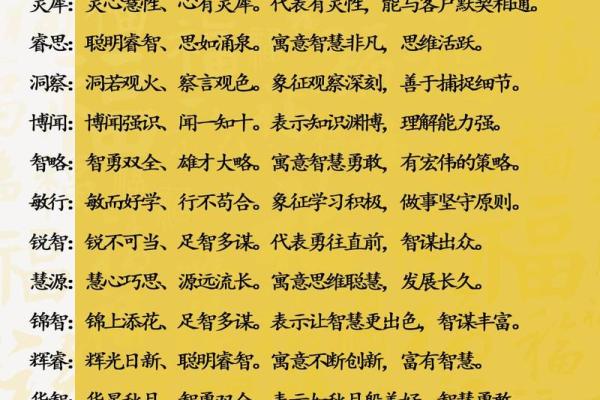 灵犀：灵心慧性、心有灵犀。代表有灵性，能与客户默契相通。
睿思：聪明睿智、思如涌泉。寓意智慧非凡，思维活跃。
洞察：洞若观火、察言观色。象征观察深刻，善于捕捉细节。
博闻：博闻强识、闻一知十。表示知识渊博，理解能力强。
智略：智勇双全、雄才大略。寓意智慧勇敢，有宏伟的策略。
敏行：敏而好学、行不苟合。象征学习积极，做事坚守原则。
锐智：锐不可当、足智多谋。代表勇往直前，智谋出众。
慧源：慧心巧思、源远流长。寓意思维聪慧，发展长久。
锦智：锦上添花、足智多谋。表示让智慧更出色，智谋丰富。
辉睿：辉光日新、聪明睿智。寓意不断创新，富有智慧。
华智：华星秋月、智勇双全。表示如秋月般美好，智慧勇敢。